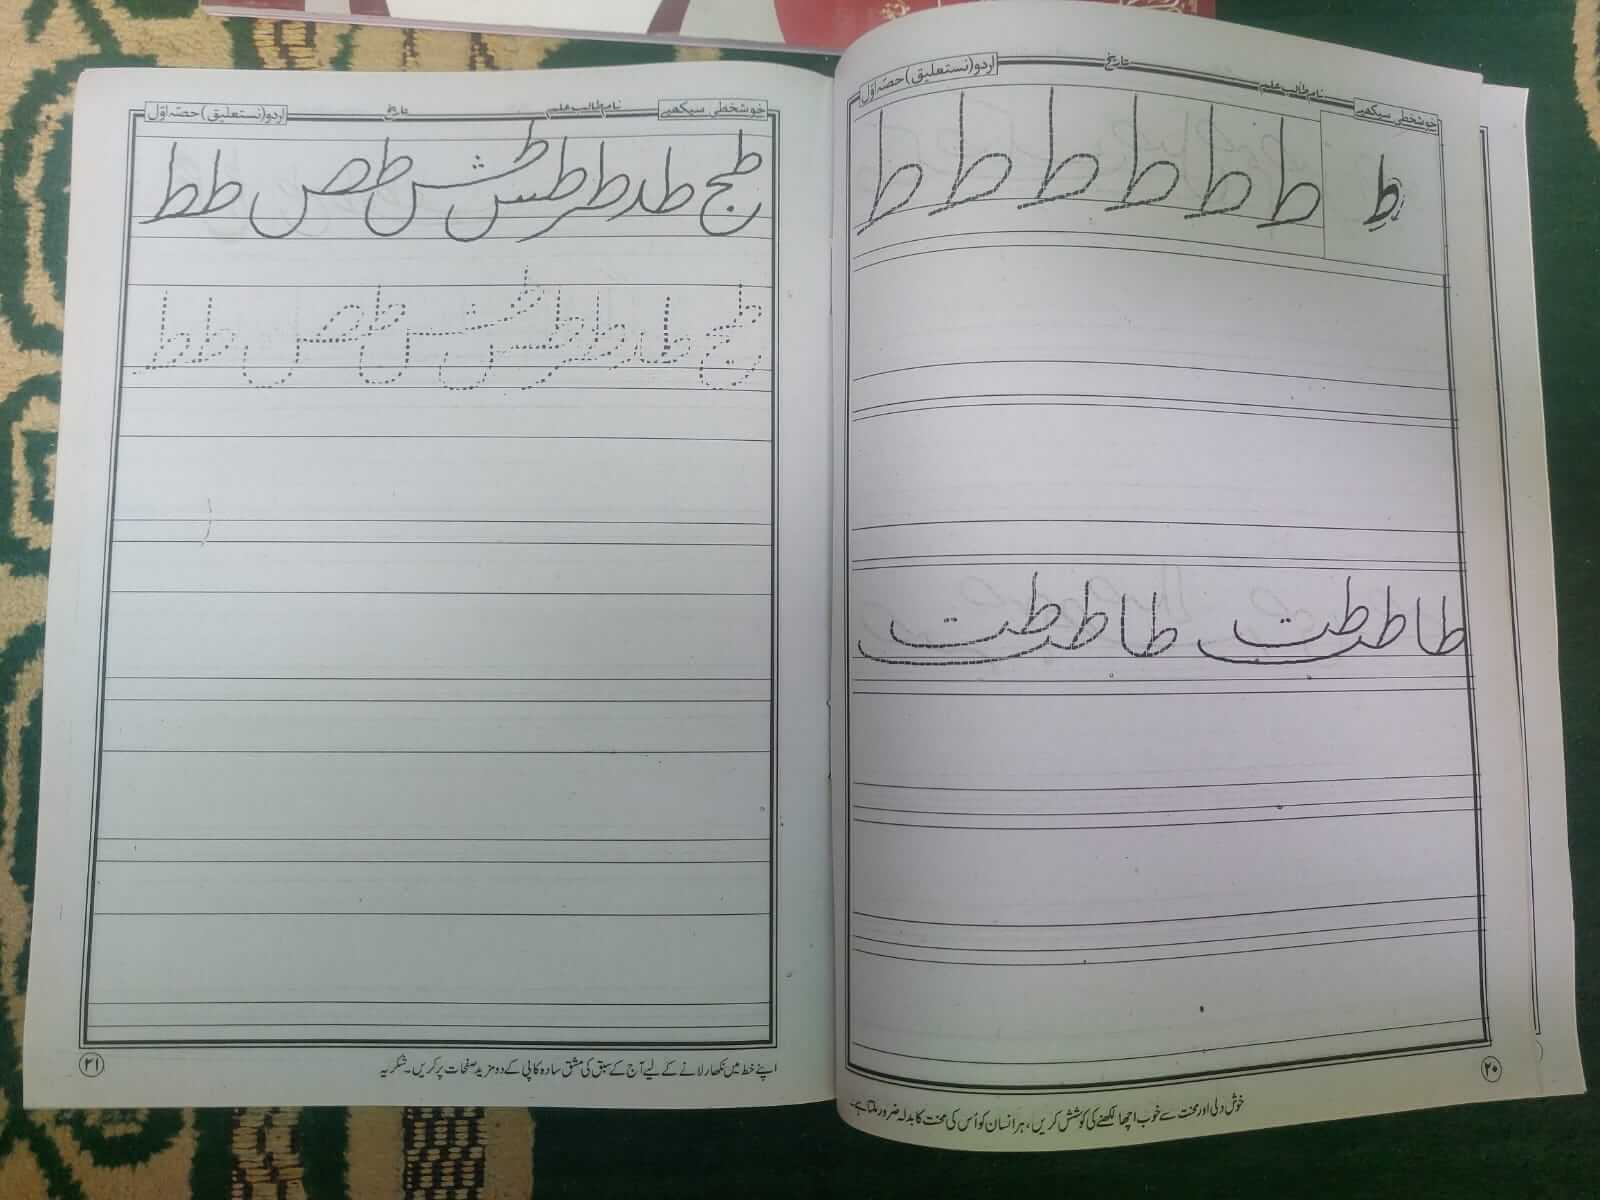 خوشخطی سیکھیے نام طالب علم تاریخ اردو (نستعلیق) حصّہ اوّل
ط ط ط ط ط ط ط
طا طب طت طا طب طت
خوش دلی اور محنت سے خوب اچھا لکھنے کی کوشش کریں، ہر انسان کو اُس کی محنت کا بدلہ ضرور ملتا ہے۔
۲۰
خوشخطی سیکھیے نام طالب علم تاریخ اردو (نستعلیق) حصّہ اوّل
طج طد طر طس طش طص طط
طج طد طر طس طش طص طط
اپنے خط میں نکھار لانے کے لیے آج کے سبق کی مشق سادہ کاپی کے دو مزید صفحات پر کریں۔ شکریہ
۲۱